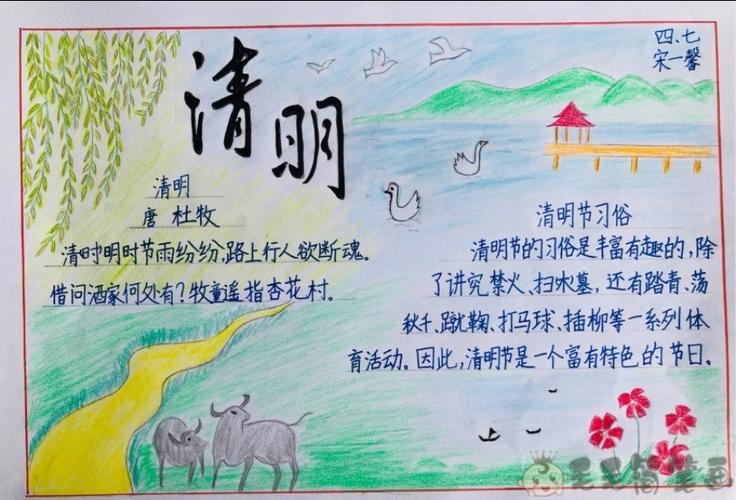 四、七
宋一馨
清明
清明
唐 杜牧
清时明时节雨纷纷,路上行人欲断魂。
借问酒家何处有?牧童遥指杏花村。
清明节习俗
清明节的习俗是丰富有趣的,除
了讲究禁火、扫水墓,还有踏青、荡
秋千、蹴鞠、打马球、插柳等一系列体
育活动。因此,清明节是一个富有特色的节日。
毛毛简笔画